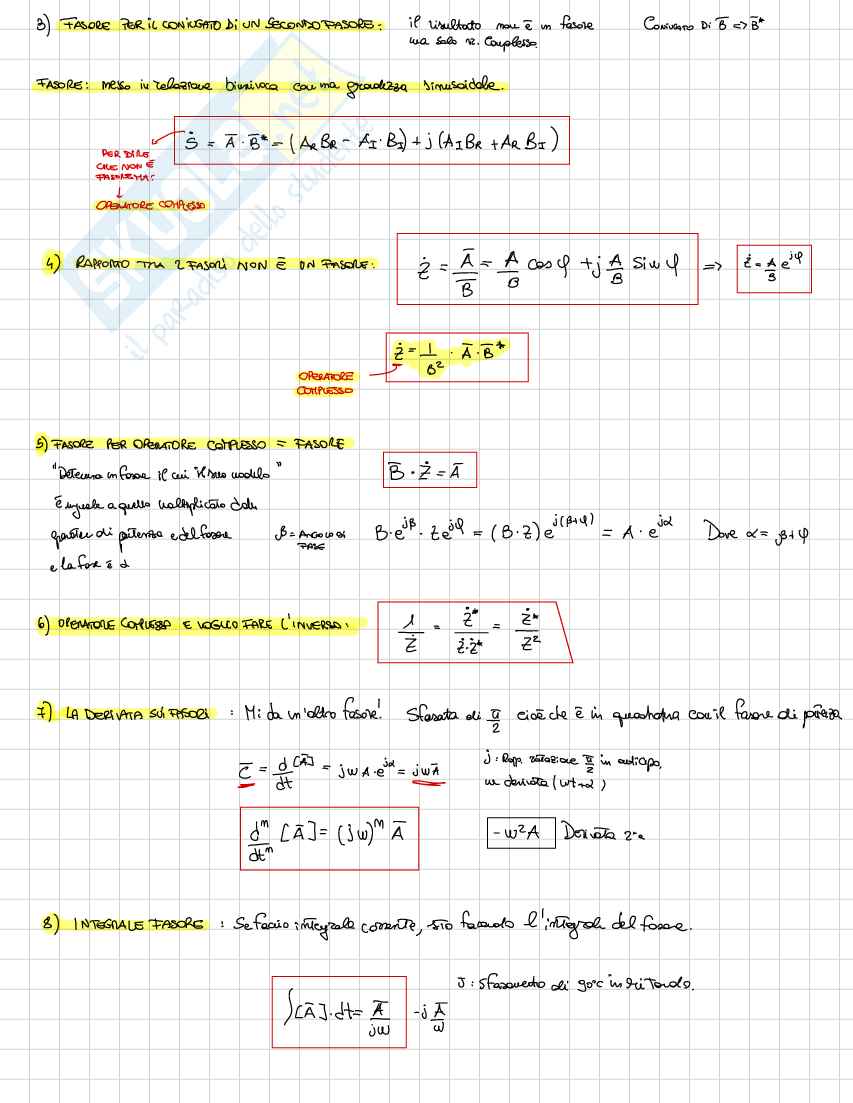 3) FASORE PER IL CONIUGATO DI UN SECONDO FASORE: il risultato non è un fasore CONIUGATO DI B̅ => B̅*
ma solo n. complesso.
FASORE: messo in relazione biunivoca con una grandezza sinusoidale.
Ṡ = A̅ · B̅* = (A_R B_R − A_I · B_I) + j (A_I B_R + A_R B_I)
PER DIRE
CHE NON È
↓
OPERATORE COMPLESSO
4) RAPPORTO TRA 2 FASORI NON È UN FASORE: Ż = A̅/B̅ = A/B cos φ + j A/B sin φ => Ż = A/B e^jφ
Ż = 1/B² · A̅ · B̅*
OPERATORE
COMPLESSO
5) FASORE PER OPERATORE COMPLESSO = FASORE
"Determina un fasore il cui modulo" B̅ · Ż = A̅
è uguale a quello moltiplicato
di potenza e del fasore β = ANGOLO DI FASE B·e^jβ · Z e^jφ = (B·Z) e^j(β+φ) = A · e^jα Dove α = β+φ
e la fase è α
6) OPERATORE COMPLESSO E VOGLIO FARE L'INVERSO: 1/Ż = Ż*/Ż·Ż* = Ż*/Z²
7) LA DERIVATA SUI FASORI : Mi da un'altro fasore! Sfasata di π/2 cioè che è in quadratura con il fasore di
C̅ = d/dt [A̅] = jω A·e^jα = jωA̅ j: Rapp. rotazione π/2 in anticipo,
derivata (ωt+α)
d^m/dt^m [A̅] = (jω)^m A̅ -ω²A Derivata 2ª
8) INTEGRALE FASORE : Se faccio integrale corrente, sto facendo l'integrale del fasore.
J: sfasamento di 90° in ritardo.
∫[A̅]·dt = A̅/jω -j A̅/ω
SKUOLA.net
il paradiso dello studente